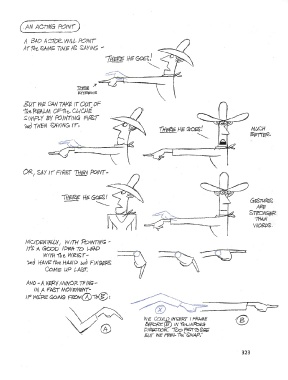 AN ACTING POINT
A BAD ACTOR WILL POINT
AT THE SAME TIME AS SAYING -
"THERE HE GOES!"
BUT WE CAN TAKE IT OUT OF
THE REALM OF THE CLICHÉ
SIMPLY BY POINTING FIRST
AND THEN SAYING IT.
"THERE HE GOES!"
MUCH
BETTER.
OR, SAY IT FIRST THEN POINT-
"THERE HE GOES!"
GESTURES
ARE
STRONGER
THAN
WORDS.
INCIDENTALLY, WITH POINTING -
IT'S A GOOD IDEA TO LEAD
WITH THE WRIST -
AND HAVE THE HAND AND FINGERS
COME UP LAST.
AND - A VERY MINOR THING -
IN A FAST MOVEMENT -
IF WE'RE GOING FROM A TO B:
A
X
B
WE COULD INSERT
BEFORE B IN
DIRECTION. TOO FAST TO SEE
BUT WE FEEL THE 'SNAP.'
323